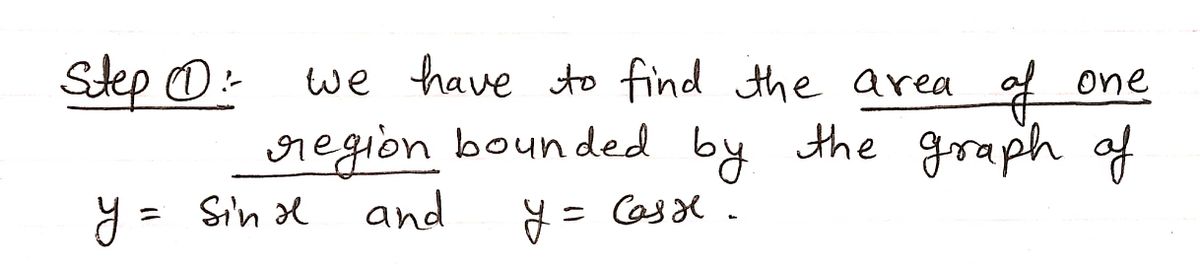 Step ①:- we have to find the area of one
region bounded by the graph of
y = Sin x and y = Cos x .